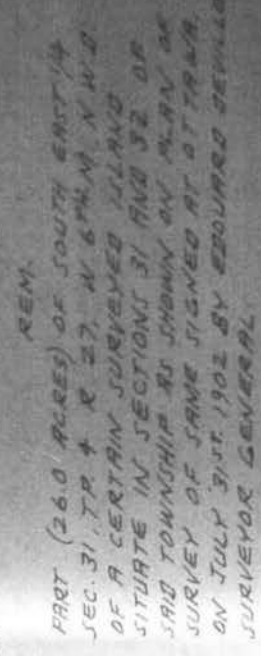 REM.
PART (26.0 ACRES) OF SOUTH EAST 1/4
SEC. 31, TP. 4 R 27, W 6TH M, N W D
OF A CERTAIN SURVEYED ISLAND
SITUATE IN SECTIONS 31 AND 32 OF
SAID TOWNSHIP AS SHOWN ON PLAN OF
SURVEY OF SAME SIGNED AT OTTAWA
ON JULY 31ST. 1902 BY EDOUARD DEVILLE
SURVEYOR GENERAL